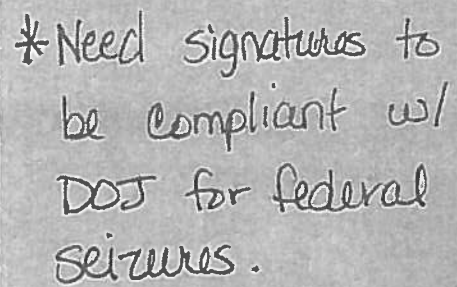 *Need signatures to
be compliant w/
DOJ for federal
seizures.